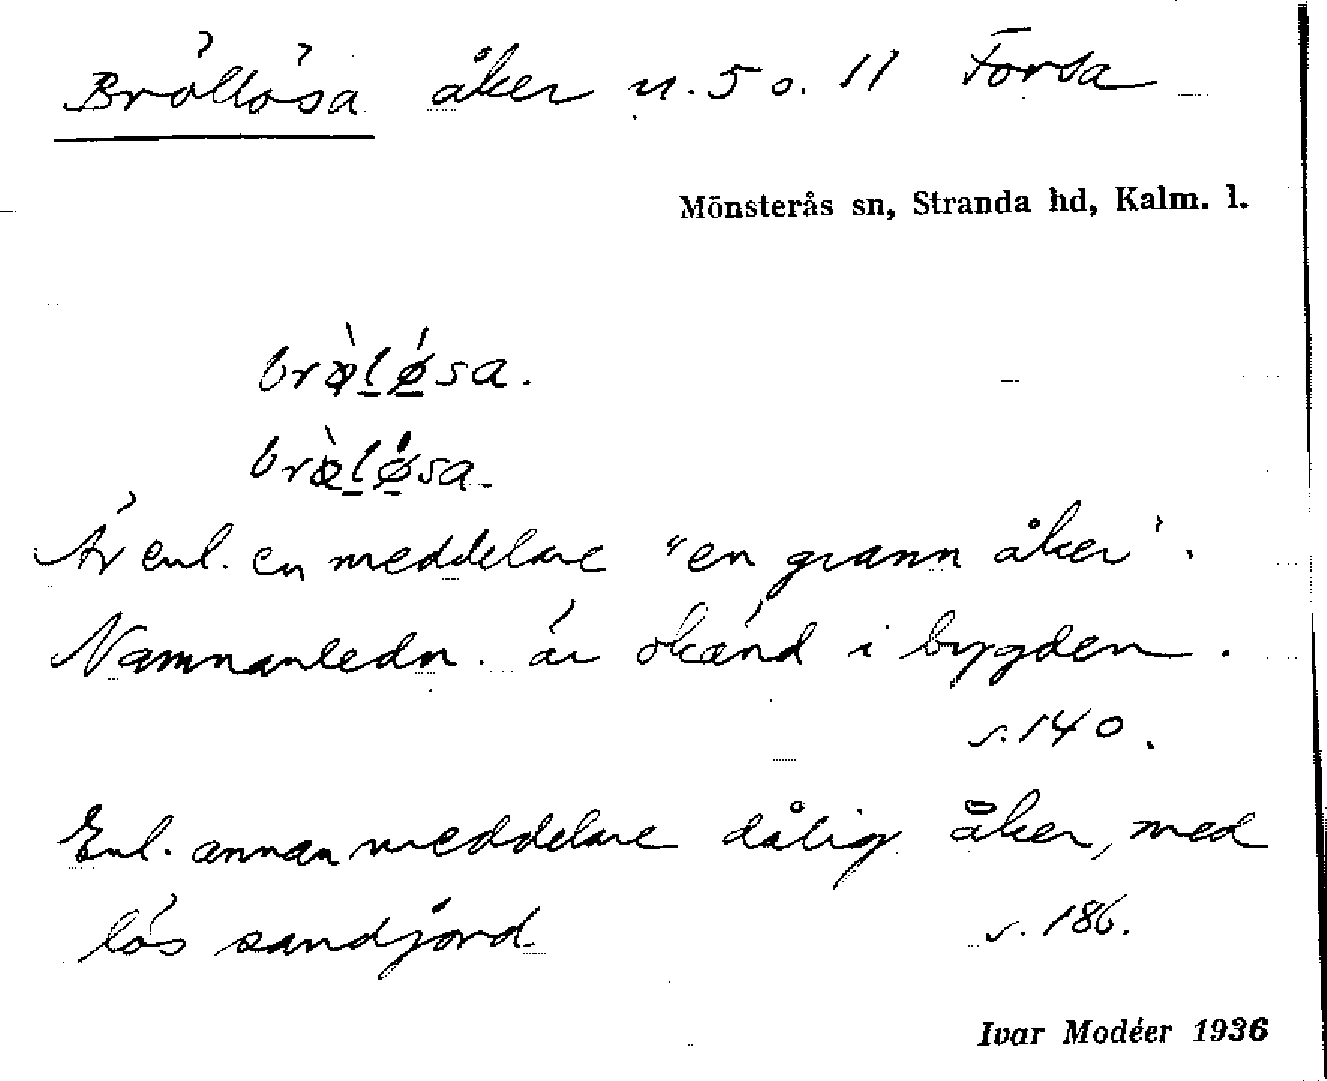 Bröllösa åker n. 5 o. 11 Forsa
Mönsterås sn, Stranda hd, Kalm. l.
brø̀lǿsa.
brø̀lǿsa.
Är enl. en meddelare "en grann åker".
Namnanledn. är okänd i bygden.
s. 140.
Enl. annan meddelare dålig åker, med
lös sandjord
s. 186.
Ivar Modéer 1936